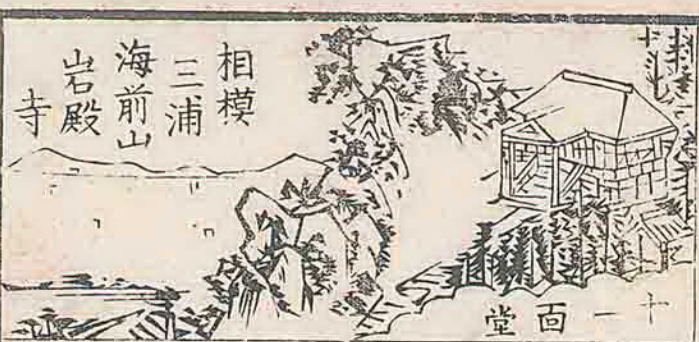 相模
三浦
海前山
岩殿
寺
十一面堂